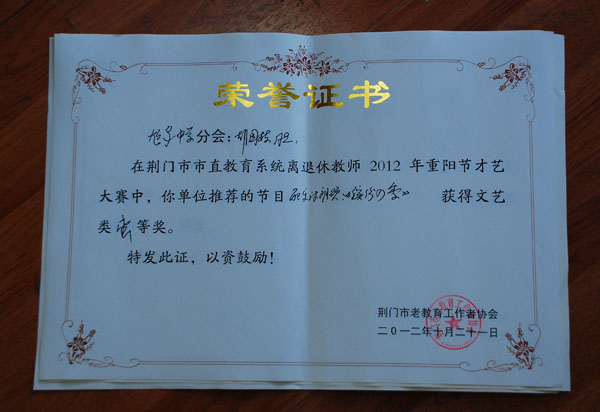 荣誉证书
中学分会：胡国
在荆门市市直教育系统离退休教师 2012 年重阳节才艺
大赛中，你单位推荐的节目 获得文艺
类 等奖。
特发此证，以资鼓励！
荆门市老教育工作者协会
二0一二年十月二十一日